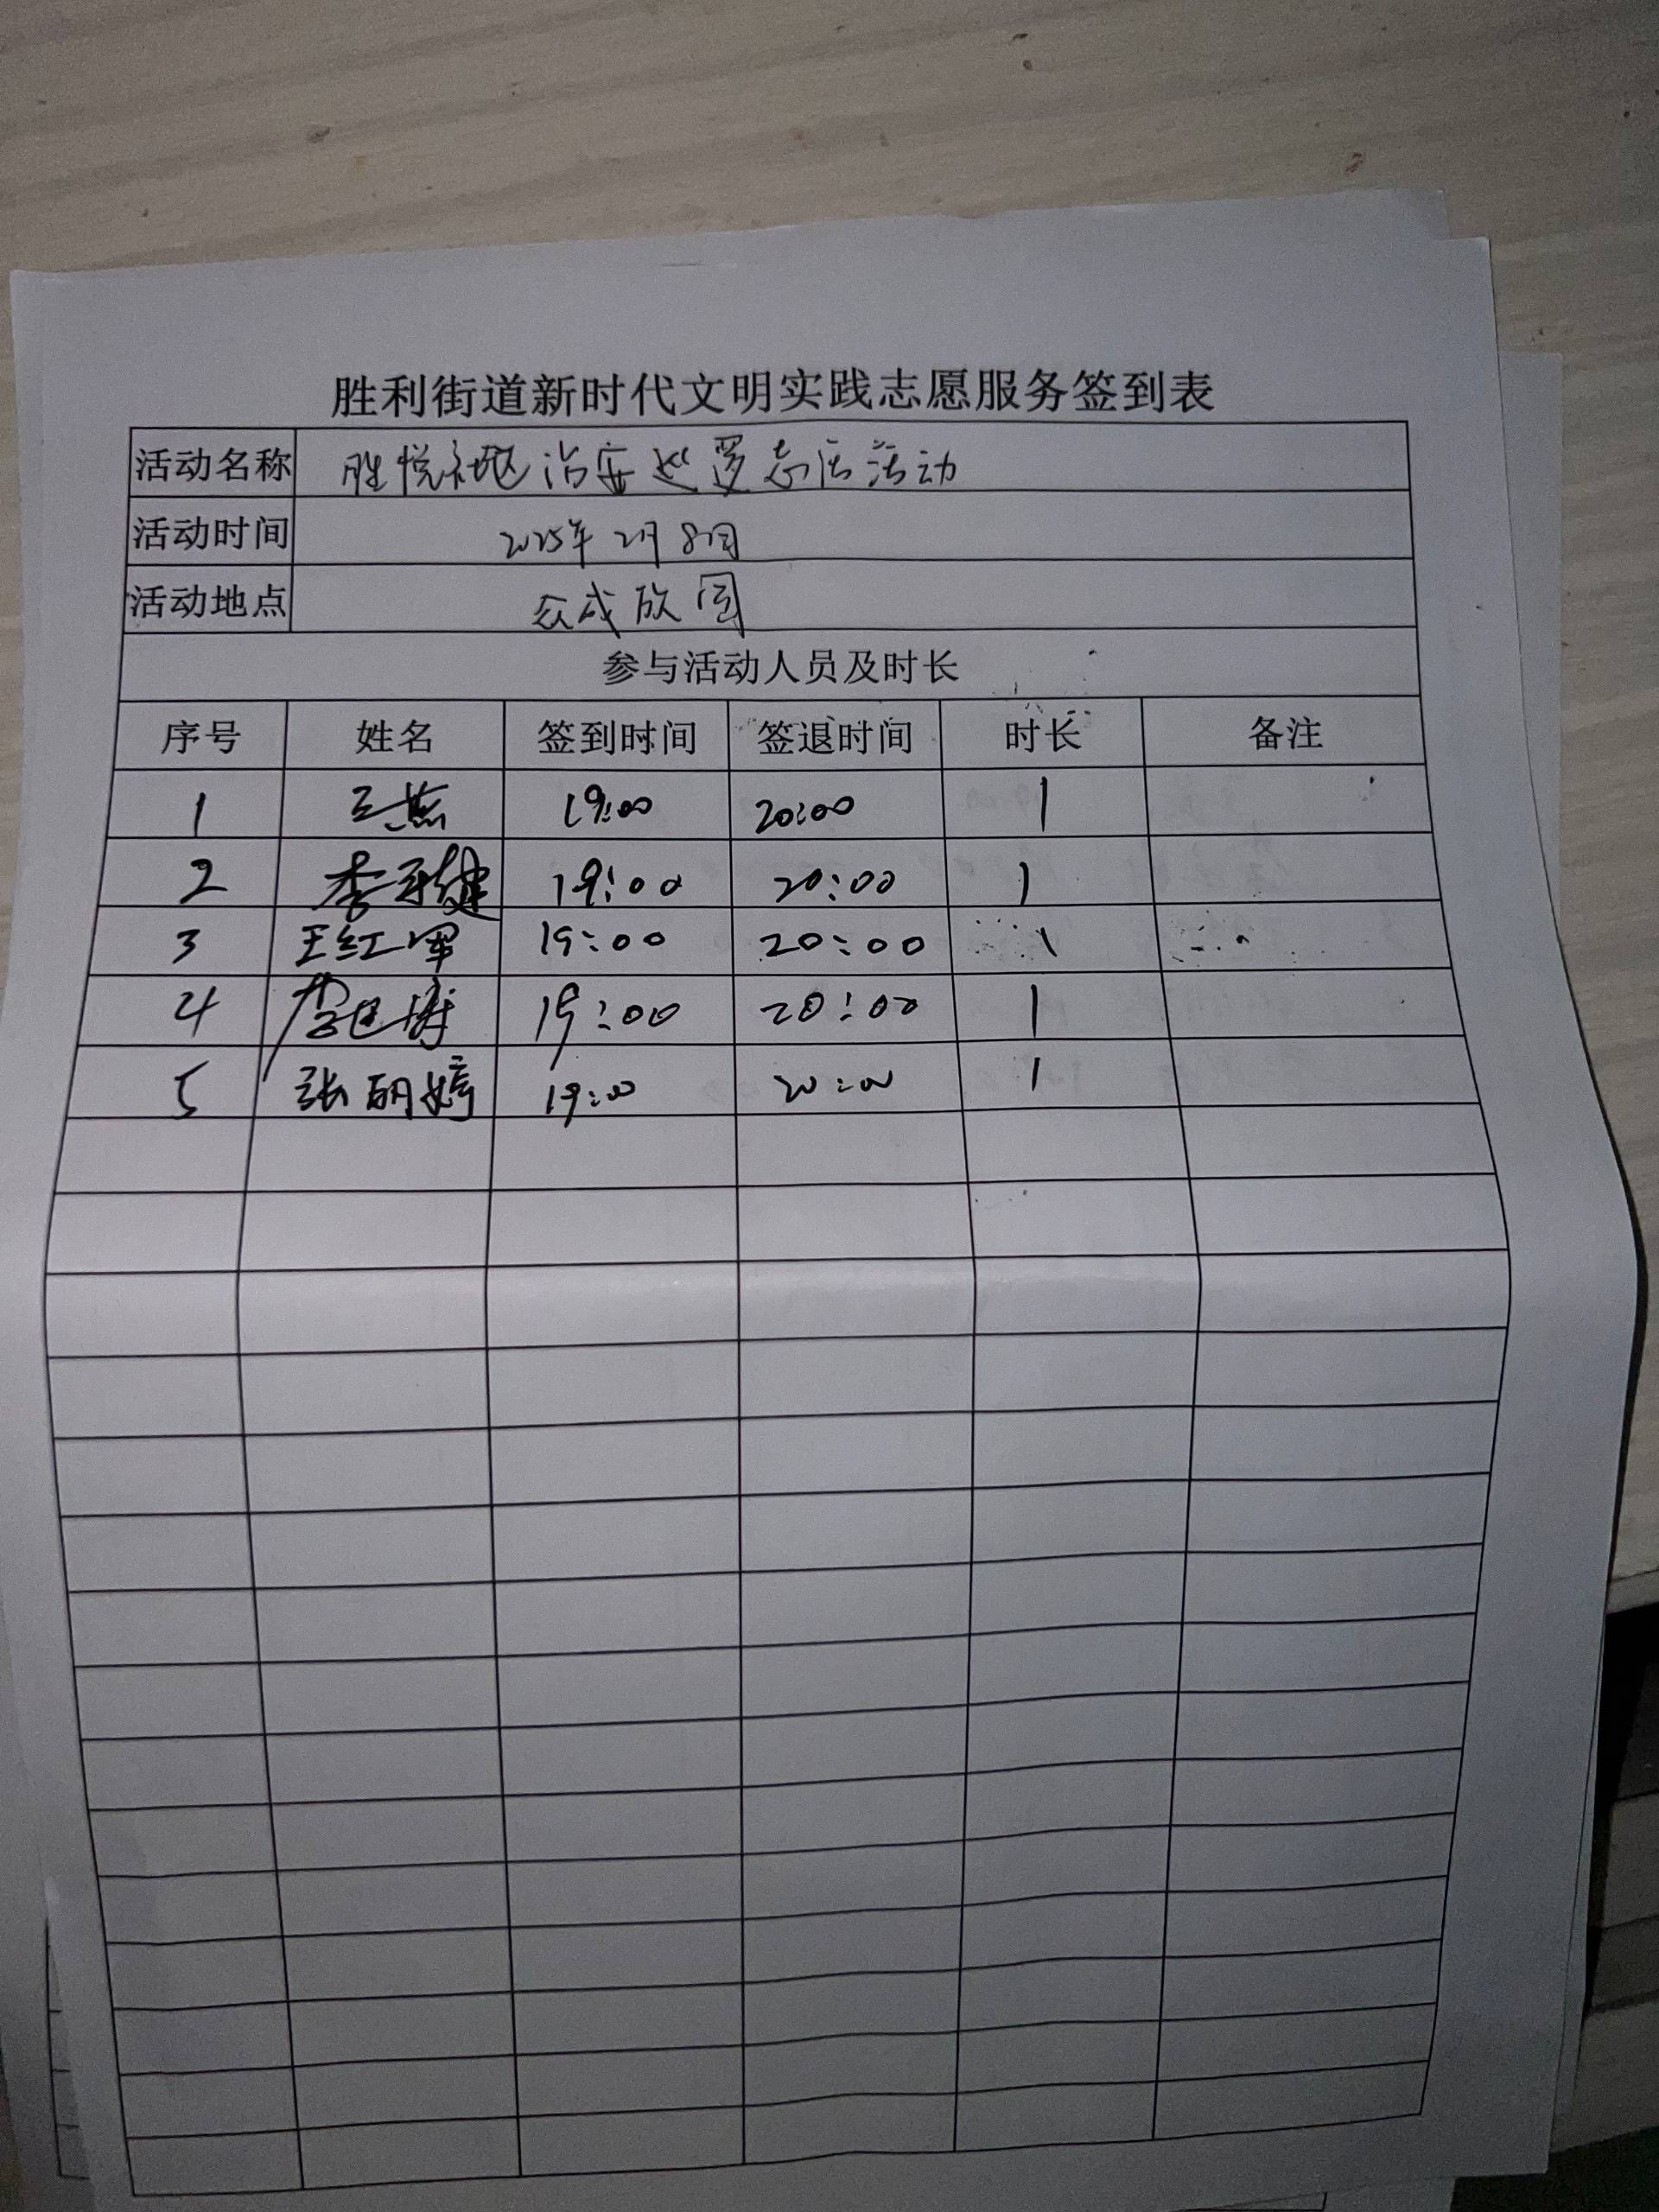 胜利街道新时代文明实践志愿服务签到表
活动名称 胜悦社区治安巡逻志活活动
活动时间 2025年2月8日
活动地点 众成欣园
参与活动人员及时长
序号 姓名 签到时间 签退时间 时长 备注
1 王燕 19:00 20:00 1
2 李 健 19:00 20:00 1
3 王红军 19:00 20:00 1
4 19:00 20:00 1
5 张丽婷 19:00 20:00 1